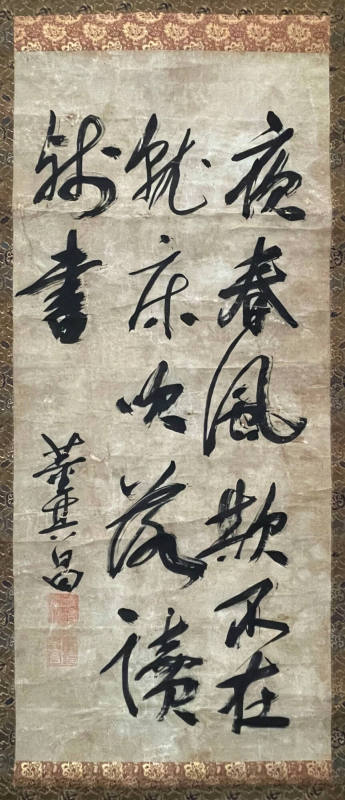 夜春風欺不在
就床吹落讀
殘書
董其昌